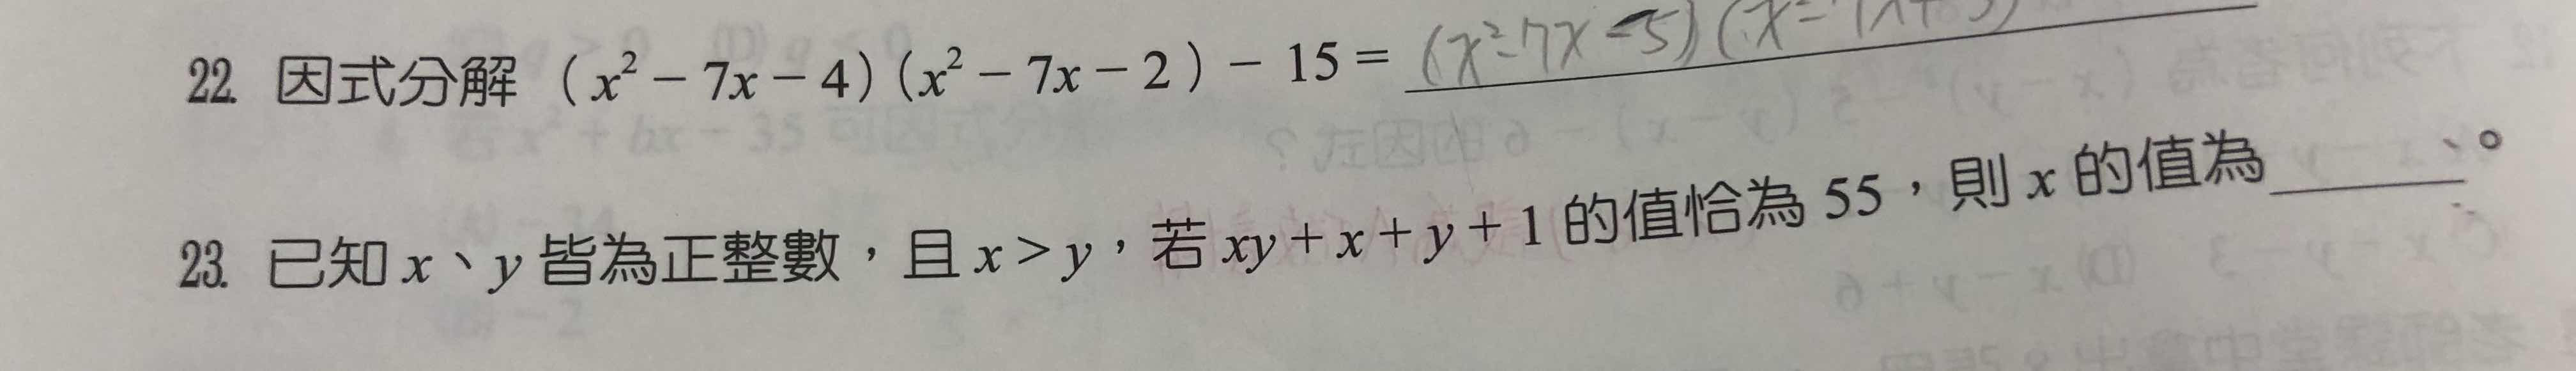 22. 因式分解 (x² − 7x − 4)(x² − 7x − 2) − 15 = (x²-7x-5)(x²-7x+3)
23. 已知 x、y 皆為正整數，且 x > y，若 xy + x + y + 1 的值恰為 55，則 x 的值為______。